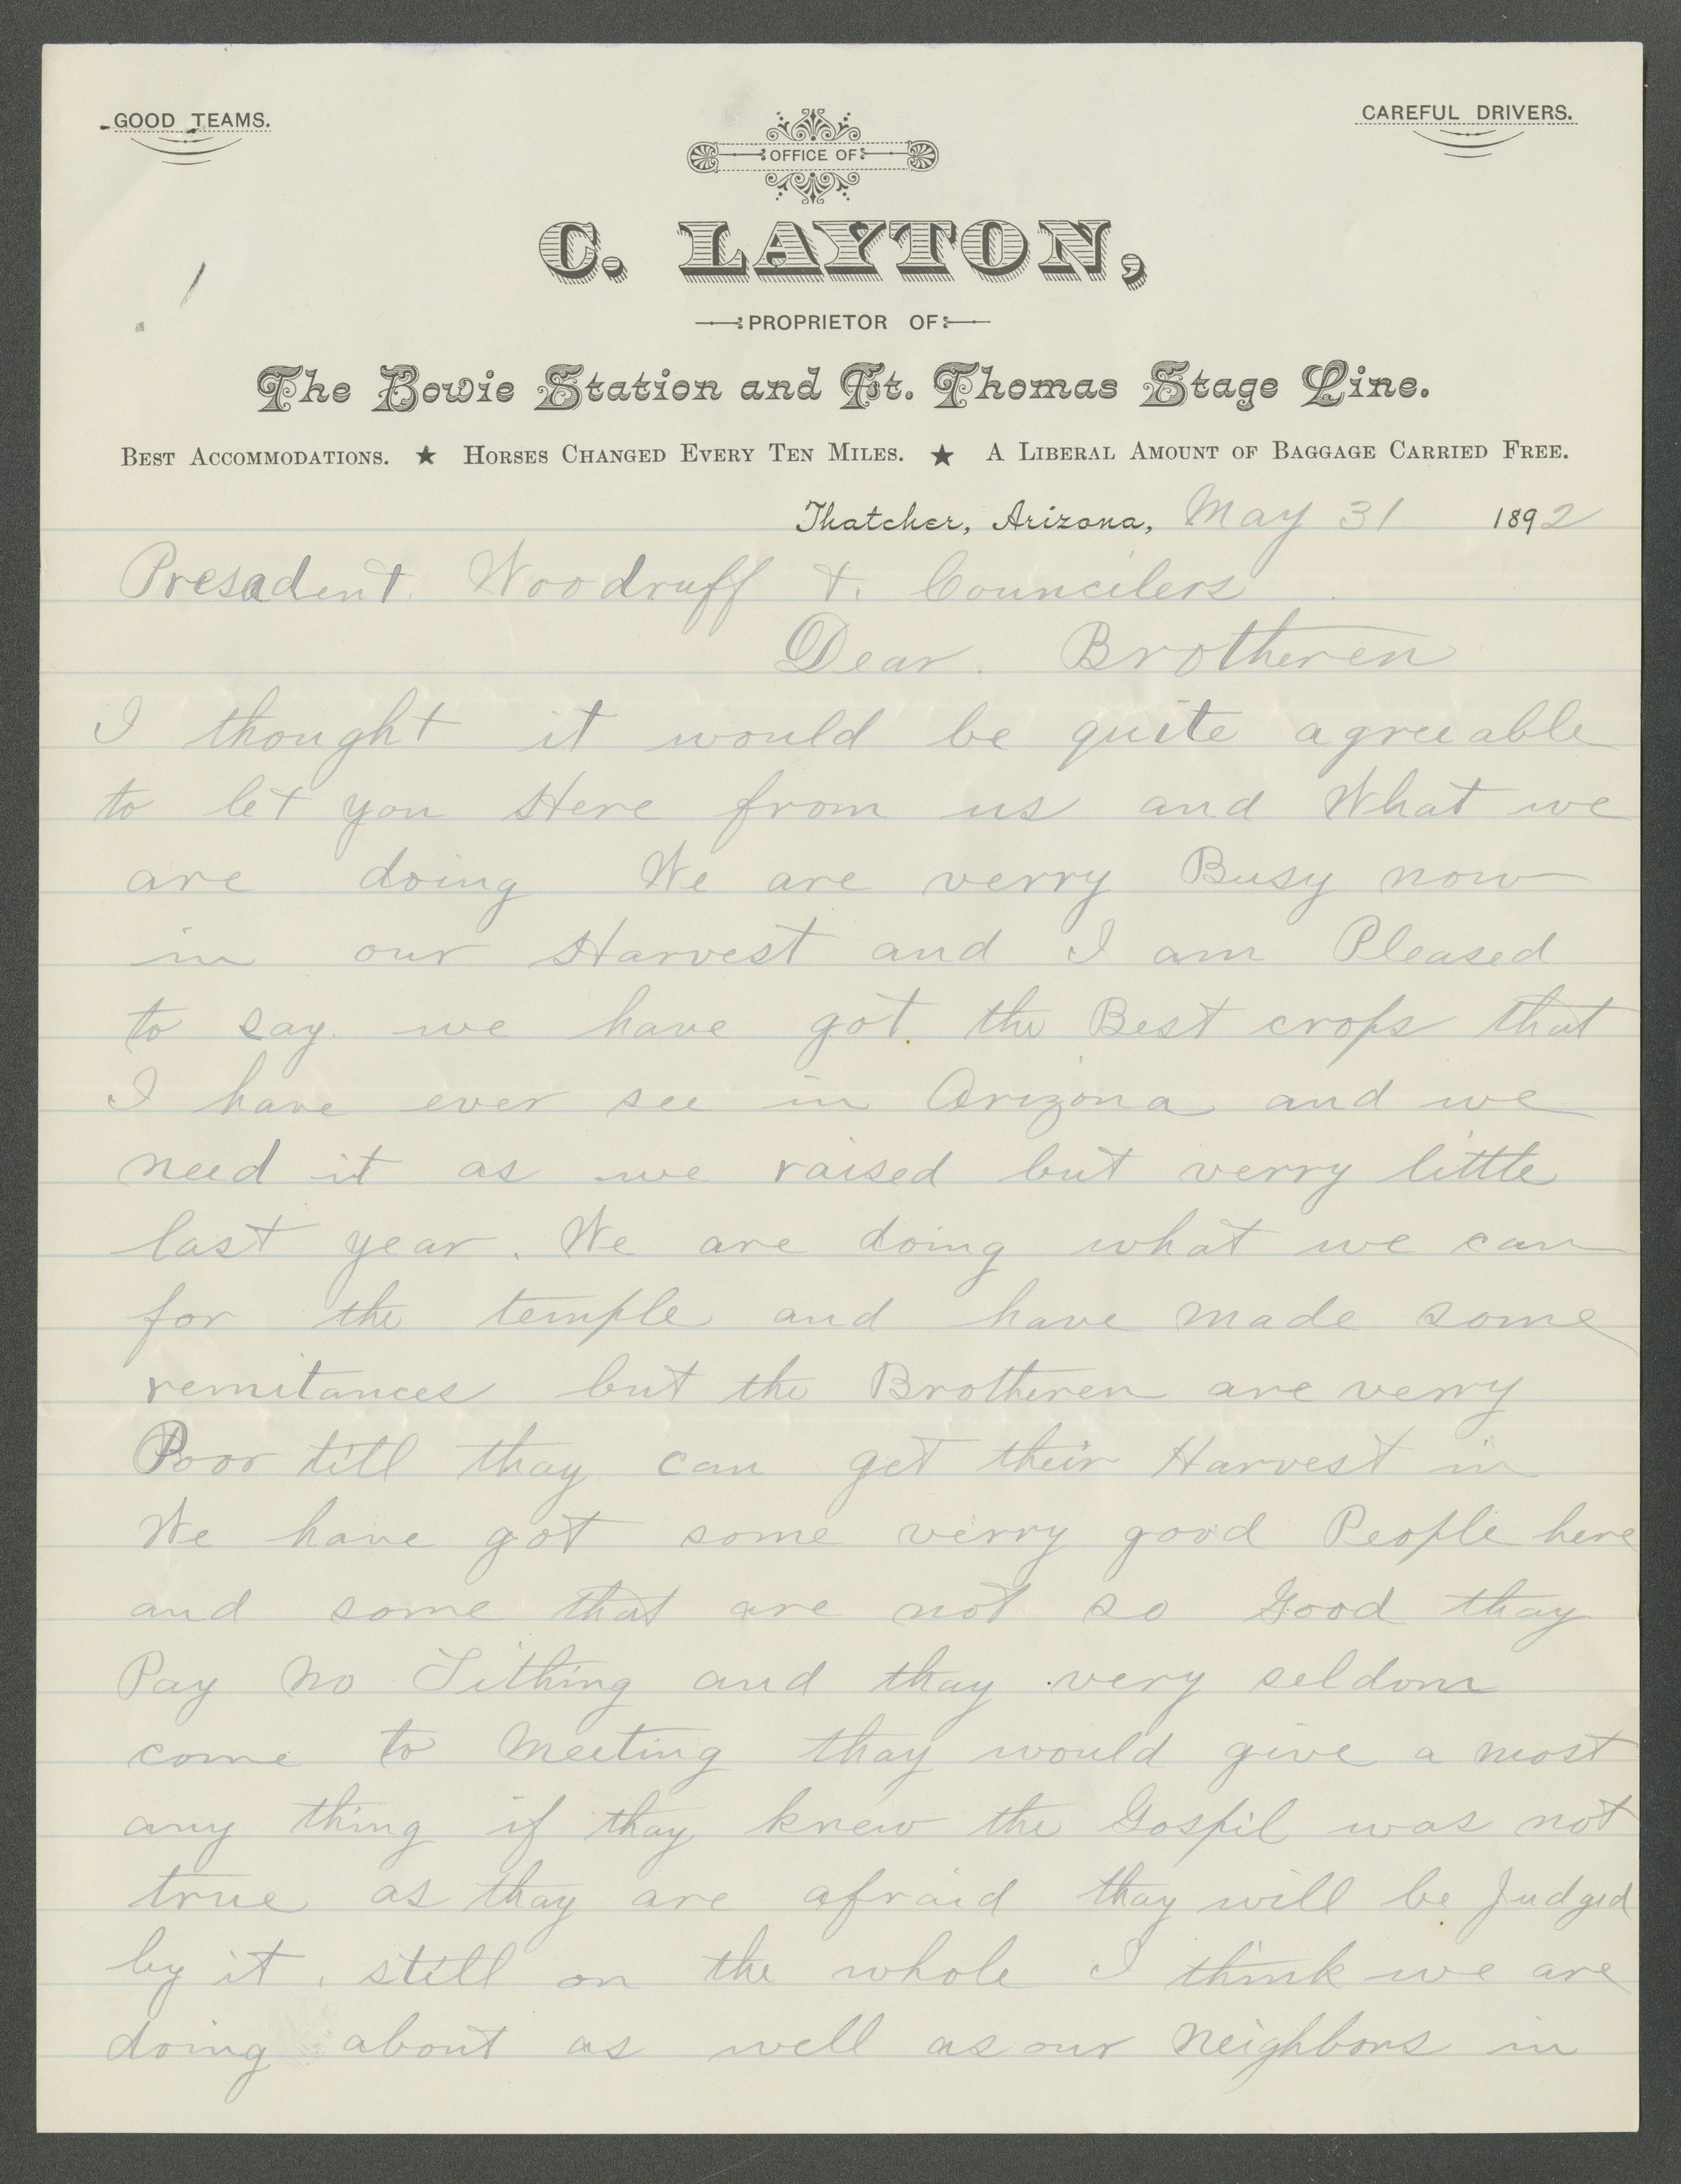 GOOD TEAMS.
CAREFUL DRIVERS.
OFFICE OF
C. LAYTON,
PROPRIETOR OF
The Bowie Station and Ft. Thomas Stage Line.
BEST ACCOMMODATIONS. ★ HORSES CHANGED EVERY TEN MILES. ★ A LIBERAL AMOUNT OF BAGGAGE CARRIED FREE.
Thatcher, Arizona, May 31 1892
Presadent. Woodruff &. Councilers
Dear Brotheren
I thought it would be quite agreeable
to let you Here from us and What we
are doing We are verry Busy now
in our Harvest and I am Pleased
to say we have got the Best crops that
I have ever see in Arizona and we
need it as we raised but verry little
last year. We are doing what we can
for the temple and have made some
remitances but the Brotheren are verry
Poor till thay can get their Harvest in
We have got some verry good People here
and some that are not so Good thay
Pay no Tithing and thay very seldom
come to meeting thay would give a most
any thing if thay knew the Gospil was not
true as thay are afraid thay will be Judged
by it, still on the whole I think we are
doing about as well as our neighbors in